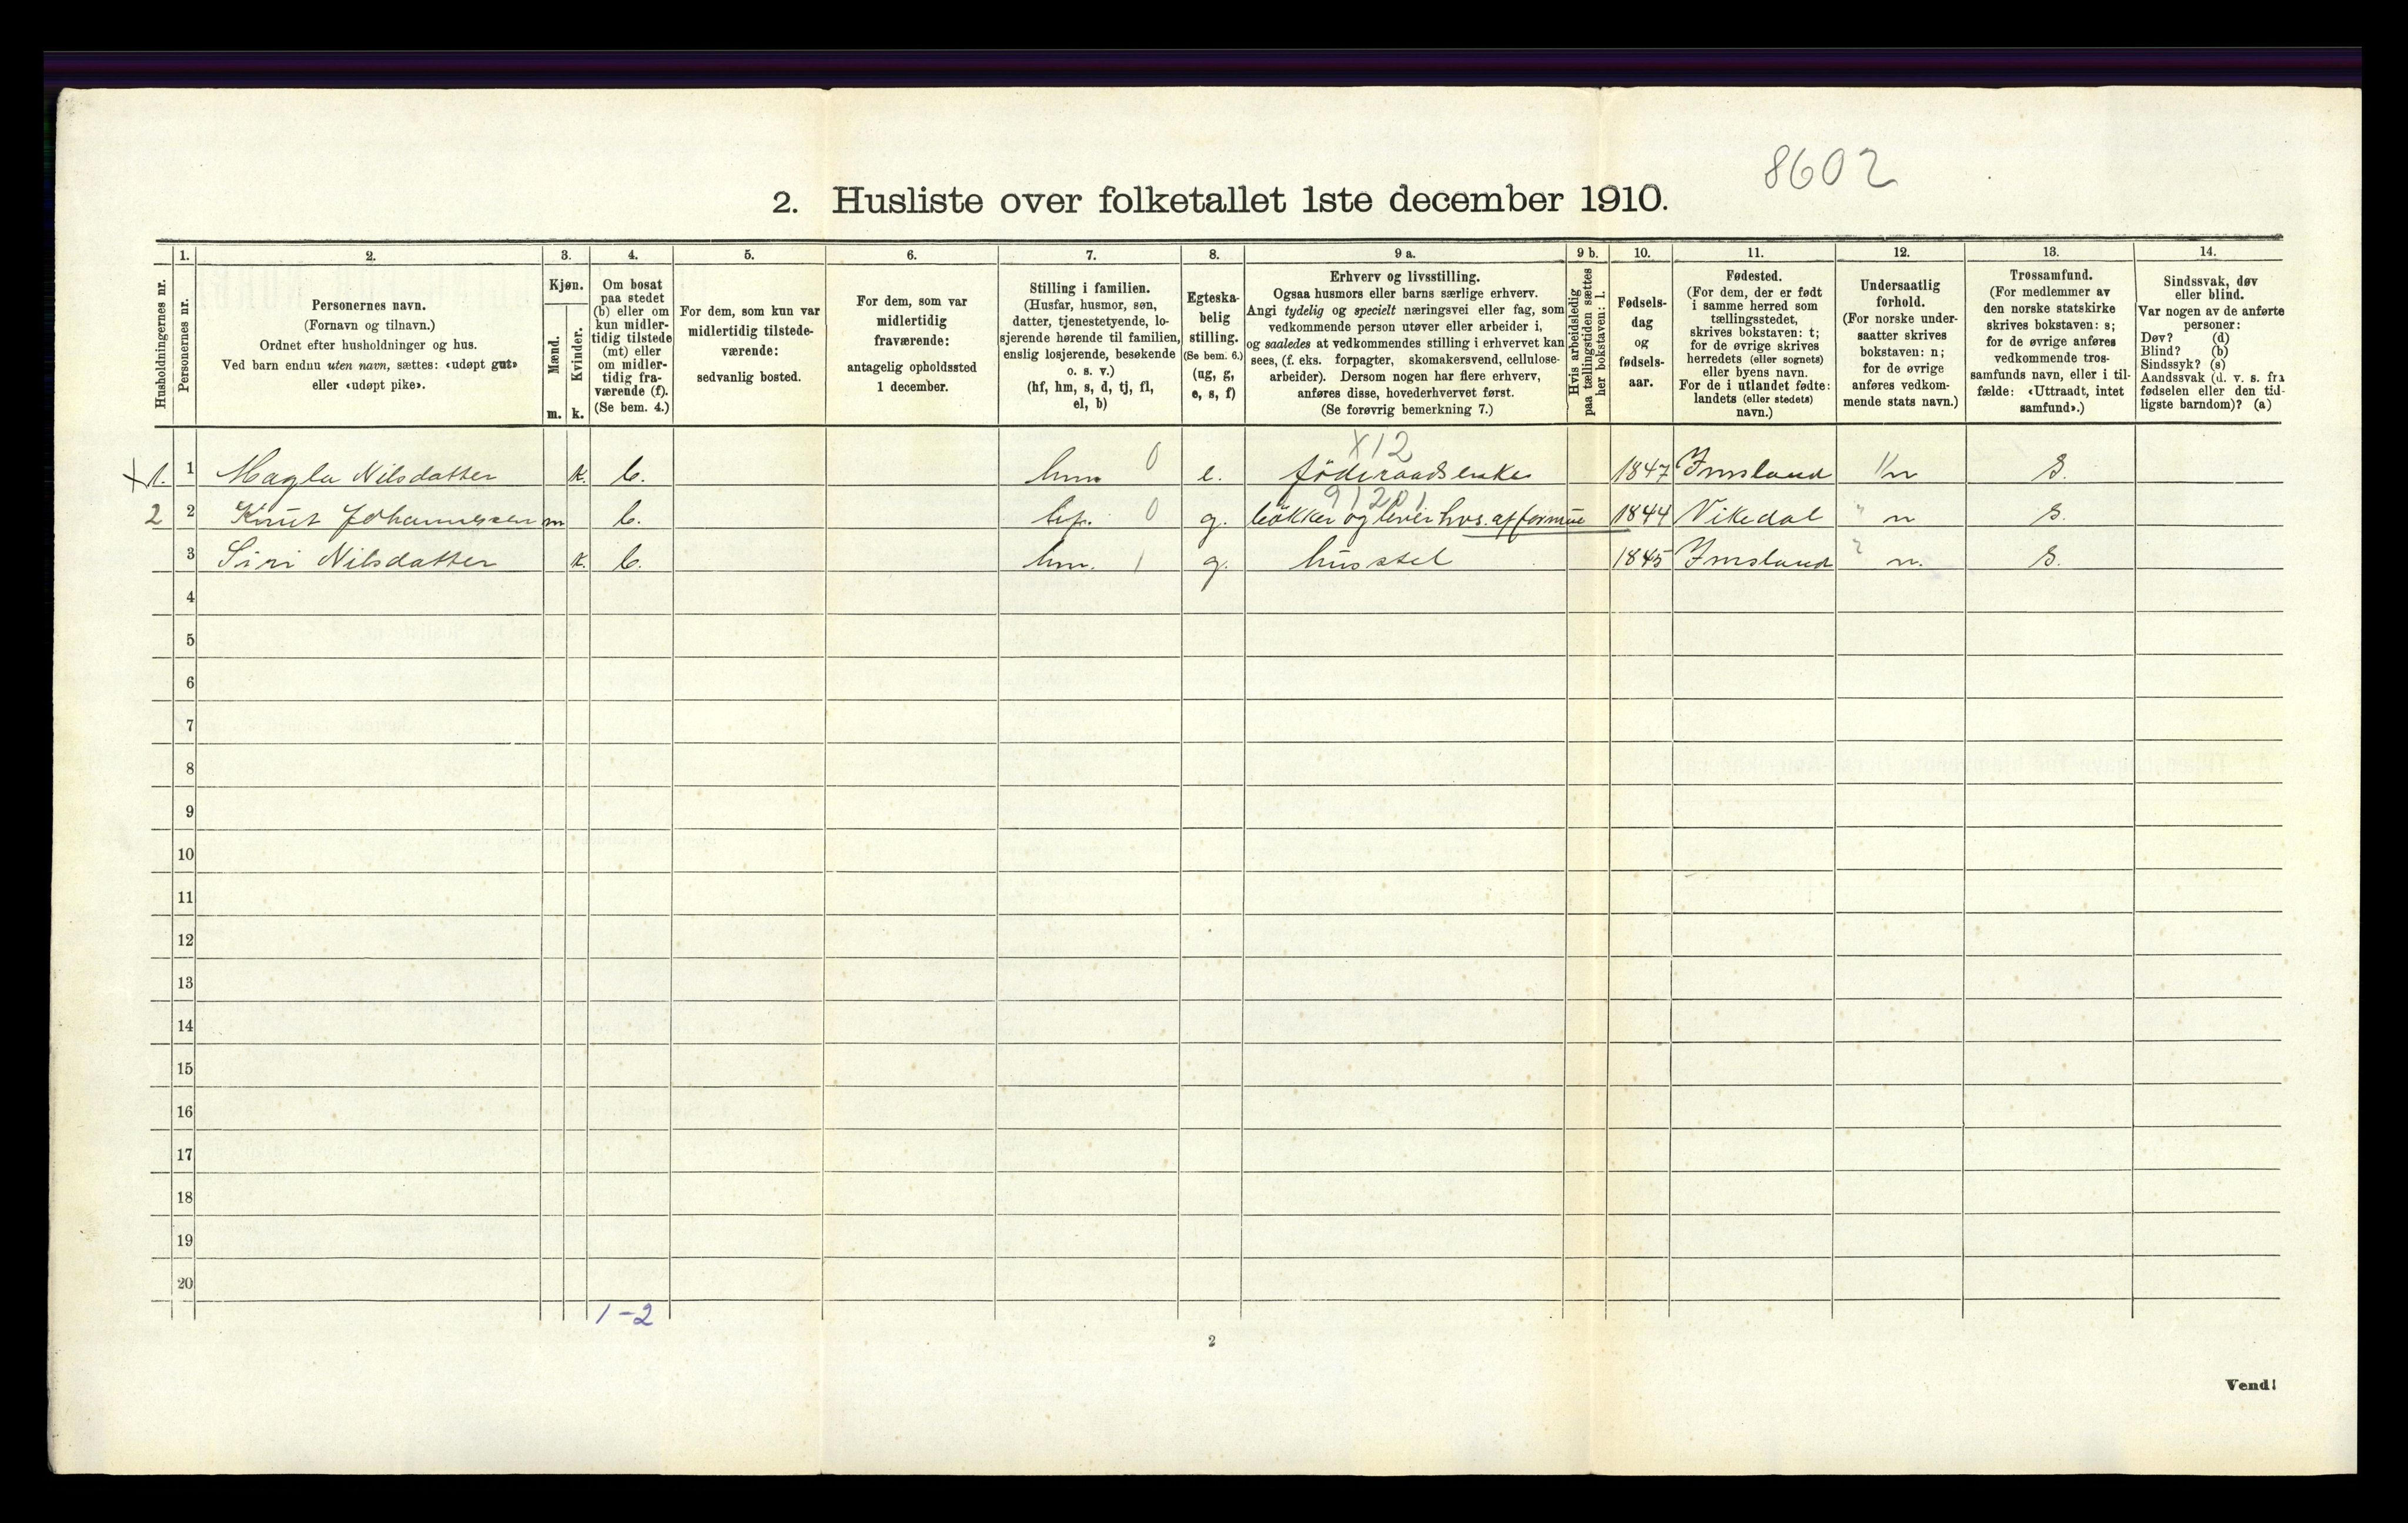 8602
2. Husliste over folketallet 1ste december 1910.
Husholdningernes nr.
1.
Personernes nr.
2.
Personernes navn.
(Fornavn og tilnavn.)
Ordnet efter husholdninger og hus.
Ved barn endnu uten navn, sættes: «udøpt gut»
eller «udøpt pike».
3.
Kjøn.
Mænd.
Kvinder.
m. k.
4.
Om bosat
paa stedet
(b) eller om
kun midler-
tidig tilstede
(mt) eller
om midler-
tidig fra-
værende (f).
(Se bem. 4.)
5.
For dem, som kun var
midlertidig tilstede-
værende:
sedvanlig bosted.
6.
For dem, som var
midlertidig
fraværende:
antagelig opholdssted
1 december.
7.
Stilling i familien.
(Husfar, husmor, søn,
datter, tjenestetyende, lo-
sjerende hørende til familien,
enslig losjerende, besøkende
o. s. v.)
(hf, hm, s, d, tj, fl,
el, b)
8.
Egteska-
belig
stilling.
(Se bem. 6.)
(ug, g,
e, s, f)
9 a.
Erhverv og livsstilling.
Ogsaa husmors eller barns særlige erhverv.
Angi tydelig og specielt næringsvei eller fag, som
vedkommende person utøver eller arbeider i,
og saaledes at vedkommendes stilling i erhvervet kan
sees, (f. eks. forpagter, skomakersvend, cellulose-
arbeider). Dersom nogen har flere erhverv,
anføres disse, hovederhvervet først.
(Se forøvrig bemerkning 7.)
9 b.
Hvis arbeidsledig
paa tællingstiden sættes
her bokstaven: l.
10.
Fødsels-
dag
og
fødsels-
aar.
11.
Fødested.
(For dem, der er født
i samme herred som
tællingsstedet,
skrives bokstaven: t;
for de øvrige skrives
herredets (eller sognets)
eller byens navn.
For de i utlandet fødte:
landets (eller stedets)
navn.)
12.
Undersaatlig
forhold.
(For norske under-
saatter skrives
bokstaven: n;
for de øvrige
anføres vedkom-
mende stats navn.)
13.
Trossamfund.
(For medlemmer av
den norske statskirke
skrives bokstaven: s;
for de øvrige anføres
vedkommende tros-
samfunds navn, eller i til-
fælde: «Uttraadt, intet
samfund».)
14.
Sindssvak, døv
eller blind.
Var nogen av de anførte
personer:
Døv? (d)
Blind? (b)
Sindssyk? (s)
Aandssvak (d. v. s. fra
fødselen eller den tid-
ligste barndom)? (a)
X12
X 1. 1 Magla Nilsdatter k. b. hm. 0 e. føderaadsenke 1847 Imsland n S.
91201
2 2 Knut Johannessen m b. hf. 0 g. bøkker og lever hvs. af formue 1844 Vikedal " n S.
3 Siri Nilsdatter k. b. hm. 1 g. husstel 1845 Imsland " n. S.
4
5
6
7
8
9
10
11
12
13
14
15
16
17
18
19
20
1-2
2
Vend!